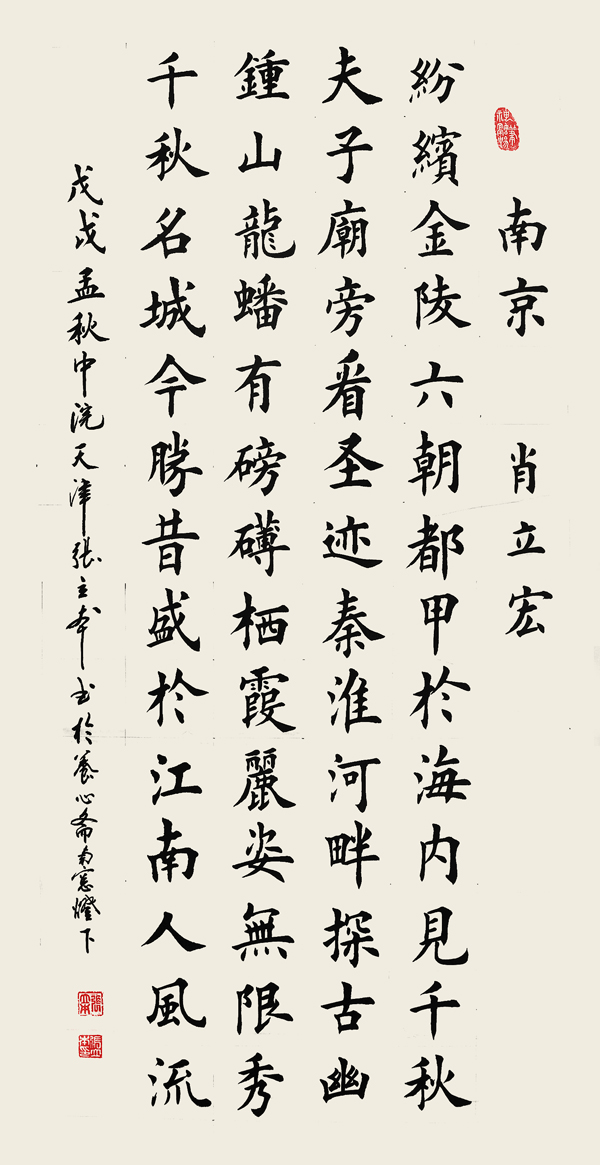 南京 肖立宏
紛繽金陵六朝都甲於海内見千秋
夫子廟旁看圣迹秦淮河畔探古幽
鍾山龍蟠有磅礴栖霞麗姿無限秀
千秋名城今勝昔盛於江南人風流
戊戌孟秋中浣天津張立本书於養心齋南窓燈下